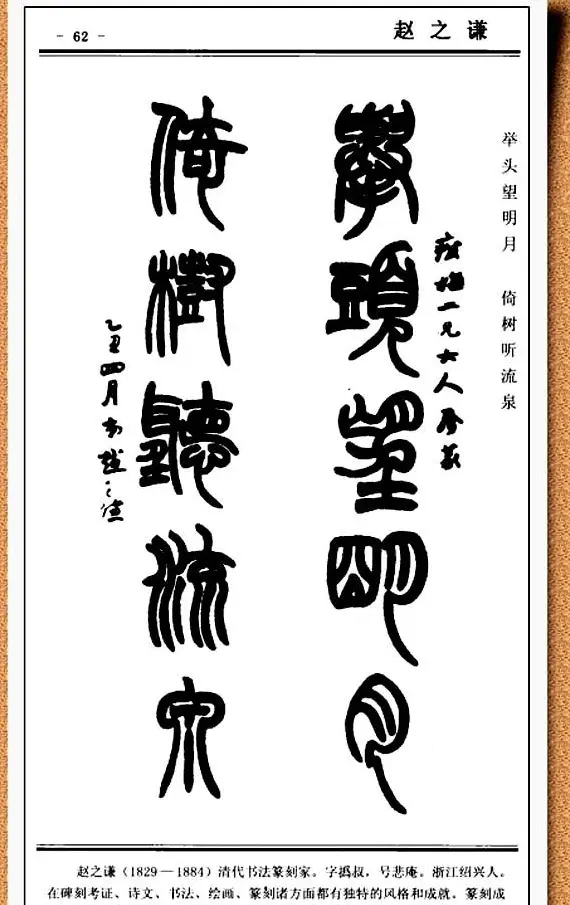 - 62 -
赵之谦
举头望明月　倚树听流泉
舉頭望朙月
梅一兄大人
倚樹聽流泉
乙丑四月弟趙之謙
赵之谦（1829－1884）清代书法篆刻家。字撝叔，号悲庵。浙江绍兴人。
在碑刻考证、诗文、书法、绘画、篆刻诸方面都有独特的风格和成就。篆刻成